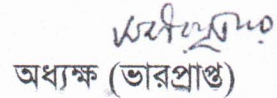 অধ্যক্ষ (ভারপ্রাপ্ত)